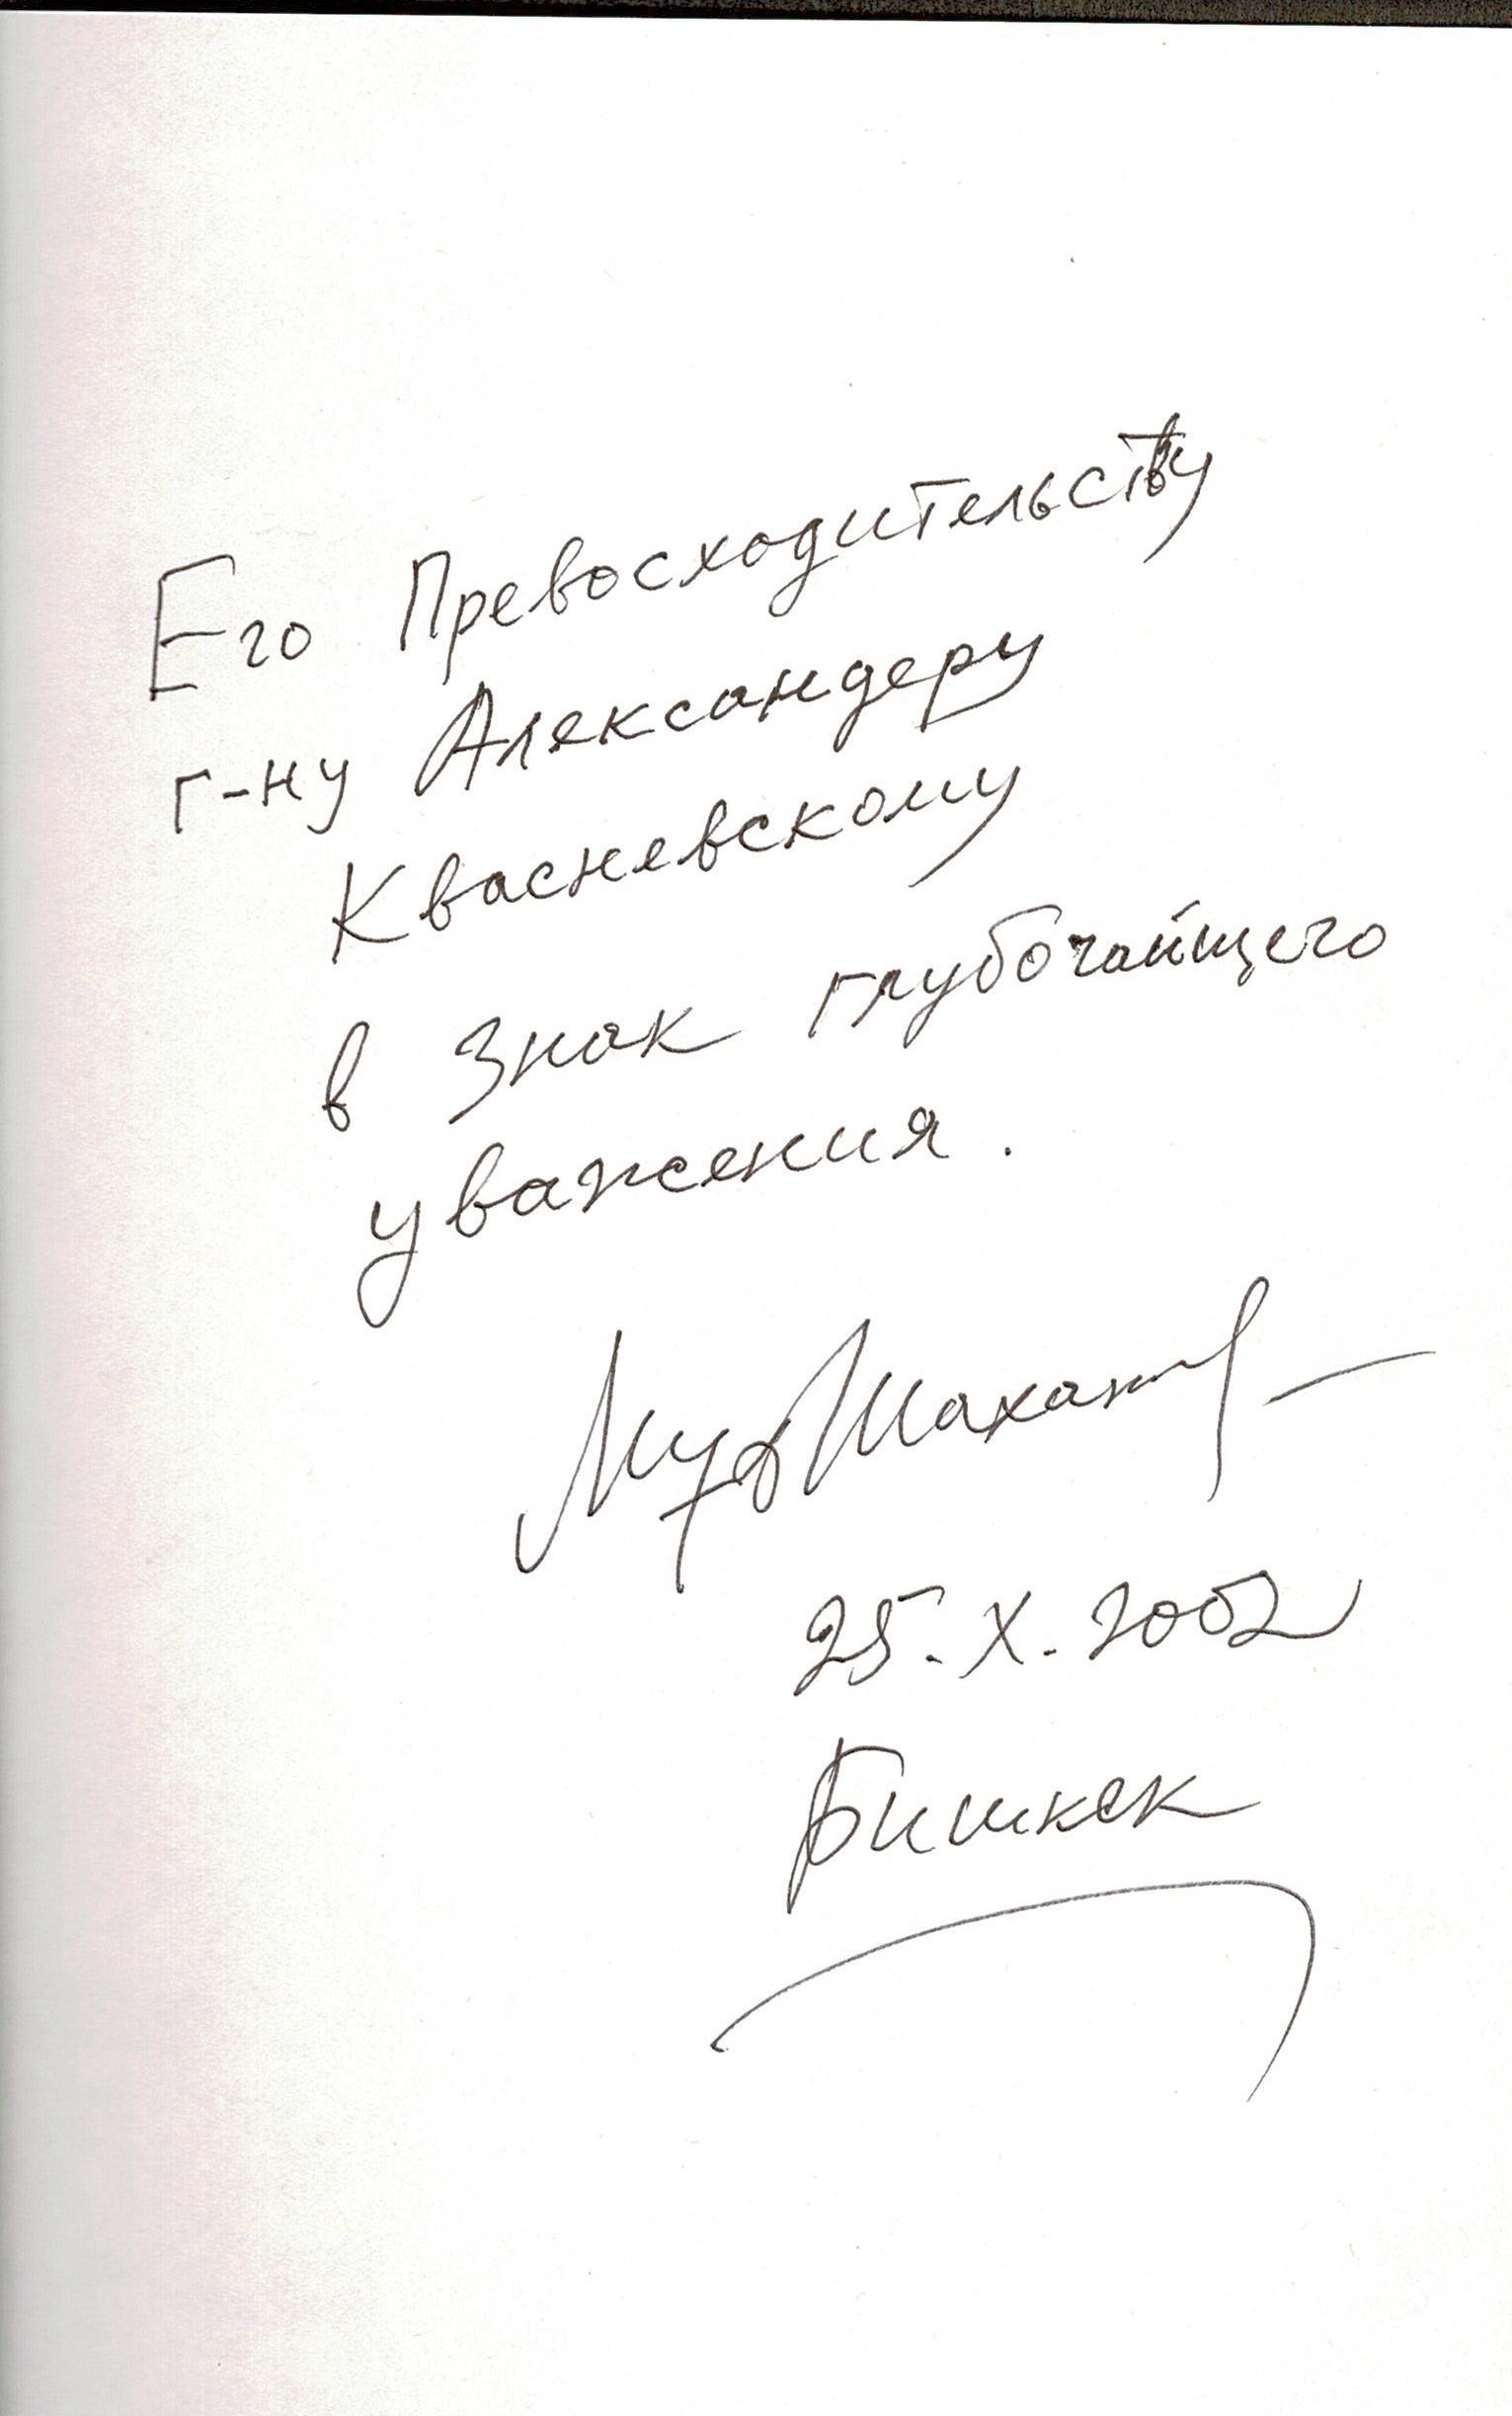 Его Превосходительству
г-ну Александеру
Квасневскому
в знак глубочайщего
уважения.
Мух Шаханов
25.X.2002
Бишкек